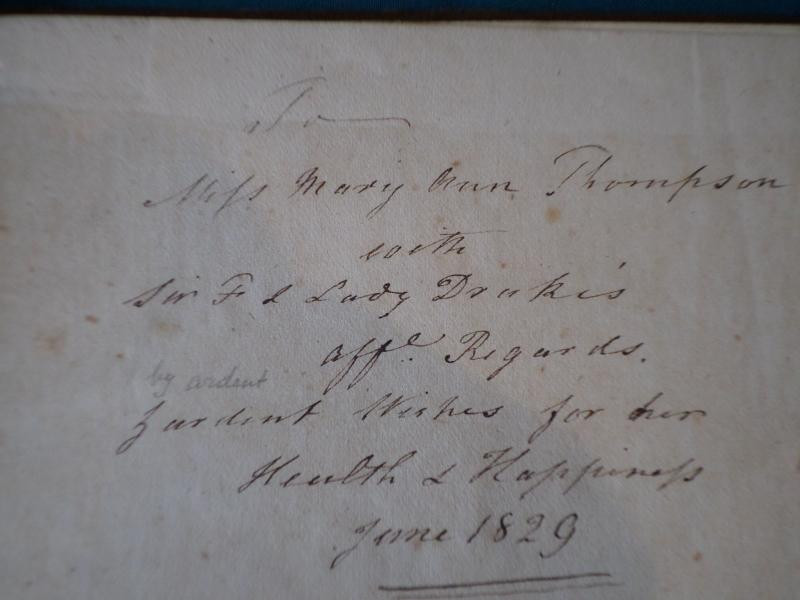 To
Miss Mary Ann Thompson
with
Sir F & Lady Drake's
affe. Regards.
by ardent
& ardent Wishes for her
Health & Happiness
June 1829